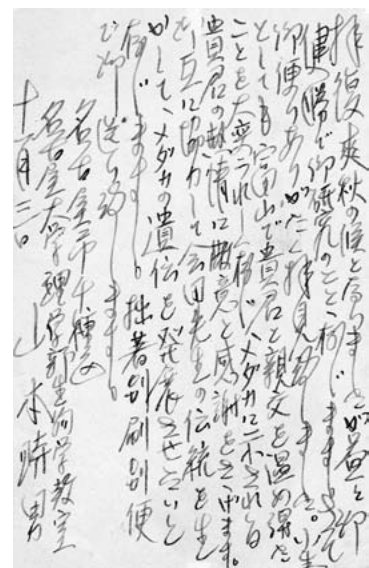 拝復 爽秋の候と なりましたが益々御
健勝で御研究のことと存じます。さて
御便りありがたく拝見致しました。小生
としても富山で貴君と親交を温め得た
ことを大変うれしく存じ、メダカに示される
貴君の熱情に敬意と感謝をささげます。
お互に協力して会田先生の伝統を生
かして、メダカの遺伝を発展させたいと
存じます。拙著別刷別便
で御送り致します。
名古屋市千種区
名古屋大学理学部生物学教室
山本時男
十一月三日